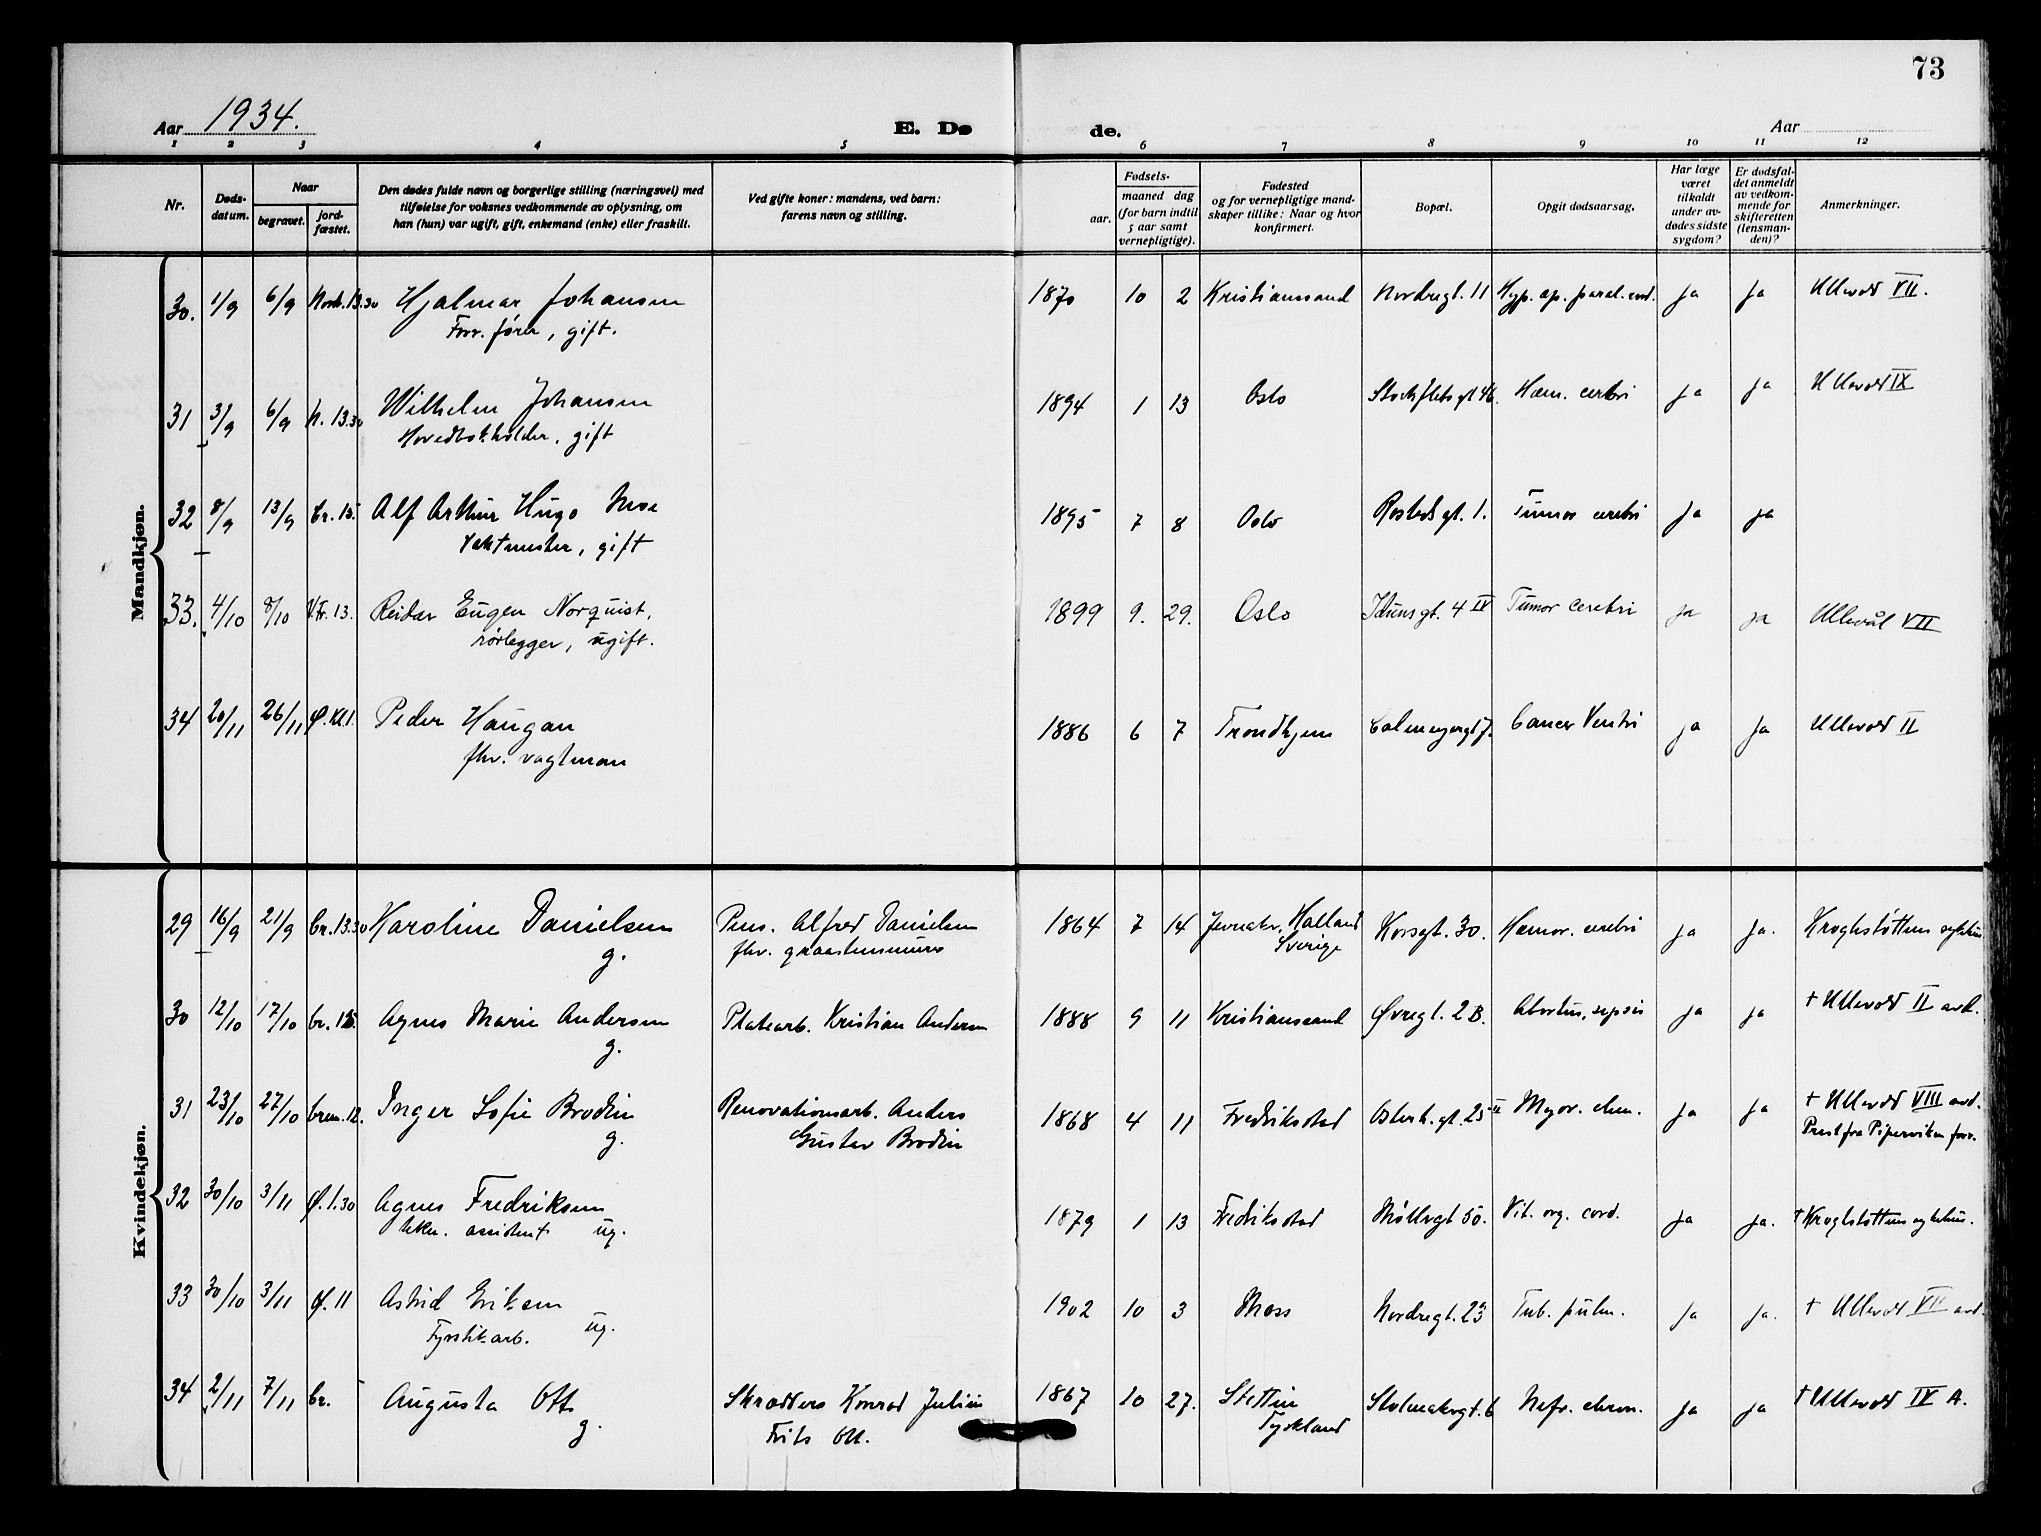 73
Aar 1934.
E. Dø
de.
Aar
1 2 3 4 5 6 7 8 9 10 11 12
Nr.
Døds-
datum.
Naar
begravet.
jord-
fæstet.
Den dødes fulde navn og borgerlige stilling (næringsvei) med
tilføielse for voksnes vedkommende av oplysning, om
han (hun) var ugift, gift, enkemand (enke) eller fraskilt.
Ved gifte koner: mandens, ved barn:
farens navn og stilling.
aar.
Fødsels-
maaned dag
(for barn indtil
5 aar samt
vernepligtige).
Fødested
og for vernepligtige mand-
skaper tillike: Naar og hvor
konfirmert.
Bopæl.
Opgit dødsaarsag.
Har læge
været
tilkaldt
under av-
dødes sidste
sygdom?
Er dødsfal-
det anmeldt
av vedkom-
mende for
skifteretten
(lensman-
den)?
Anmerkninger.
Mandkjøn.
30. 1/9 6/9 Nord. 13.30 Hjalmar Johansen 1870 10 2 Kristianssand Nordregt. 11 Hyp. ap. paral. cord. ja ja Ullevold VII.
Forr. fører, gift.
31 3/9 6/9 N. 13.30 Wilhelm Johansen 1894 1 13 Oslo Stockfletsgt 46. Hæm. cerebri ja ja Ullevold IX
Hovedbokholder, gift
32 8/9 13/9 Cr. 15. Alf Arthur Hugo Moe 1895 7 8 Oslo Rostedsgt. 1. Tumor cerebri ja ja
Vaktmester, gift
33. 4/10 8/10 V.Fr. 13. Reidar Eugen Norquist, 1899 9. 29. Oslo Idunsgt. 4 IV Tumor cerebri ja ja Ullevål VII
rørlegger, ugift.
34 20/11 26/11 Ø. Kl 1. Peder Haugan 1886 6 7 Trondhjem Calmeyergt 7. Cancer Ventri ja ja Ullevold II
fhv. vagtman
Kvindekjøn.
29 16/9 21/9 Cr. 13.30 Karoline Danielsen Pens. Alfred Danielsen 1864 7 14 Halland Korsgt. 30. Hæmor. cerebri ja ja. Kroghstøttens sykehus
g. fhv. graastensmurer Sverige
30 12/10 17/10 Cr. 15. Agnes Marie Andersen Platearb. Kristian Andersen 1888 9 11 Kristianssand Øvregt. 2 B. Abortus, sepsis ja ja + Ullevold II avd.
g.
31 23/10 27/10 Crem. 12. Inger Sofie Brodin Renovationsarb. Anders 1868 4 11 Fredrikstad Osterh.gt. 25 II Myor. chron. ja ja + Ullevold VIII avd.
g. Gustav Brodin Prest fra Pipervikens forr.
32 30/10 3/11 Ø. 1.30 Agnes Fredriksen 1879 1 13 Fredrikstad Møllergt 50. Vit. org. cord. ja ja. + Kroghstøttens sykehus.
assistent ug.
33 30/10 3/11 Ø. 11 Astrid Eriksen 1902 10 3 Moss Nordregt. 23 Tub. pulm. ja ja. + Ullevold VII avd.
Fyrstikarb. ug.
34 2/11 7/11 Cr. - Augusta Ott Skrædders Konrad Julius 1867 10 27. Stettin Stolmakergt. 6 Nefr. chron. ja ja + Ullevold IX A.
g. Frits Ott. Tyskland